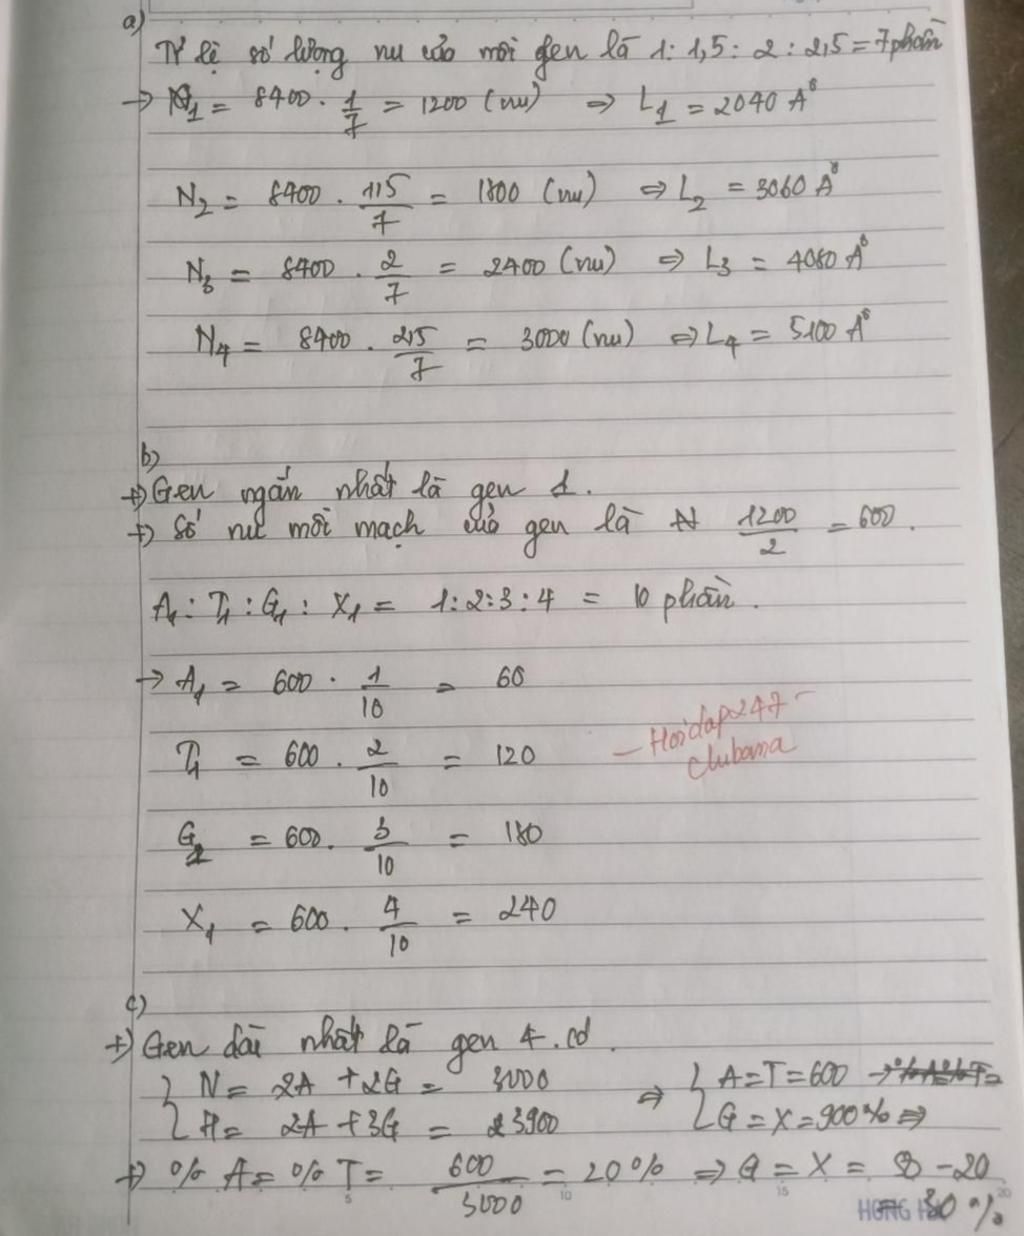 a)
Tỷ lệ số lượng nu của mỗi gen là 1: 1,5: 2 : 2,5 = 7 phần
→ N1 = 8400 . 1/7 = 1200 (nu) ⇒ L1 = 2040 A°
N2 = 8400 . 1,5/7 = 1800 (nu) ⇒ L2 = 3060 A°
N3 = 8400 . 2/7 = 2400 (nu) ⇒ L3 = 4080 A°
N4 = 8400 . 2,5/7 = 3000 (nu) ⇒ L4 = 5100 A°
b)
+) Gen ngắn nhất là gen 1.
+) Số nu mỗi mạch của gen là 1200/2 = 600.
A1 : T1 : G1 : X1 = 1:2:3:4 = 10 phần.
→ A1 = 600 . 1/10 = 60
T1 = 600 . 2/10 = 120
G1 = 600. 3/10 = 180
X1 = 600. 4/10 = 240
– Hoidap247 –
clubama
c)
+) Gen dài nhất là gen 4. có.
{ N = 2A + 2G = 3000 ⇒ { A=T=600
H = 2A + 3G = 3900 G = X = 900 % ⇒
+) % A = % T = 600/3000 = 20% ⇒ G = X = 50 - 20
= 30 %
HONG H
5 10 15 20